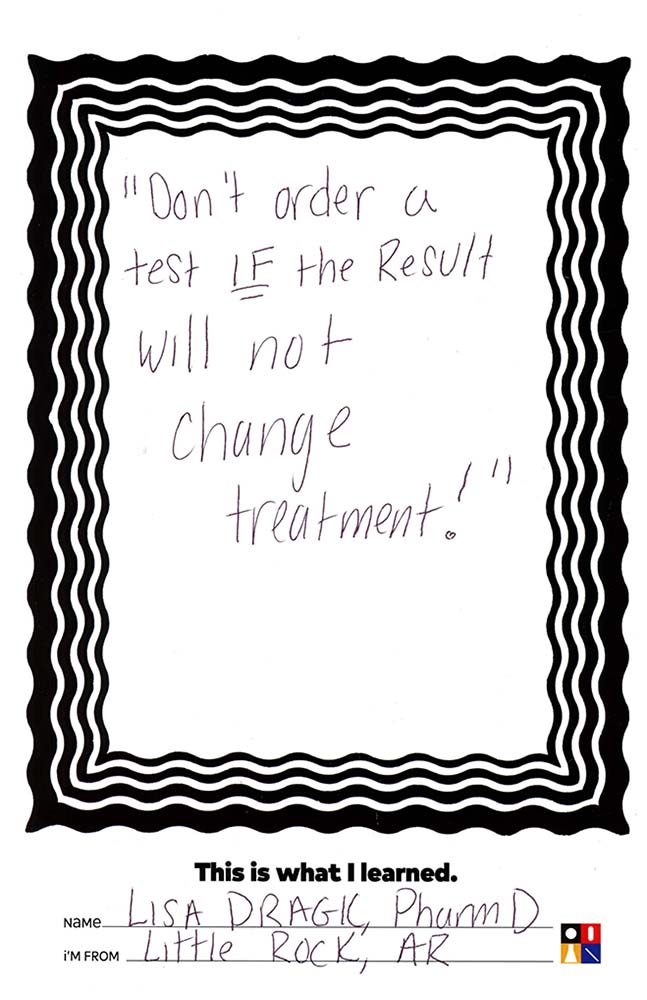 "Don't order a
test IF the Result
will not
change
treatment!"
This is what I learned.
Name LISA DRAGIC, PharmD
i'M FROM Little ROCK, AR